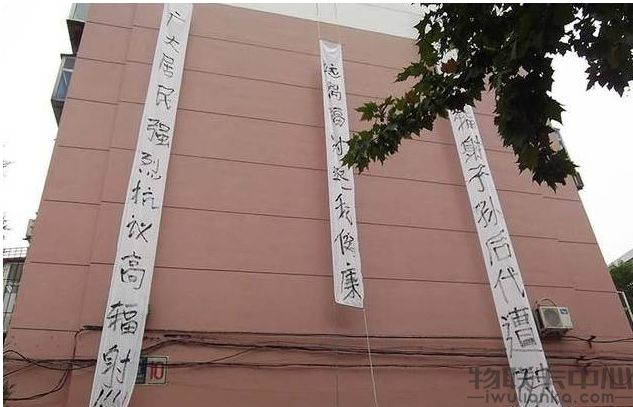 广大居民强烈抗议高辐射!!!
远离辐射还我健康
辐射子孙后代遭
10
物联卡中心
iwulianka.com